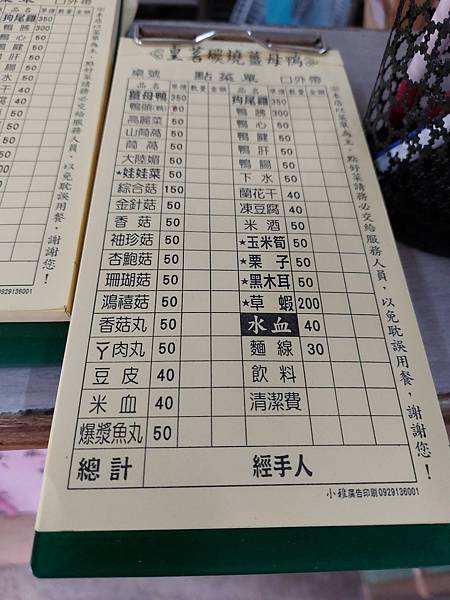 皇茗碳燒薑母鴨
桌號 點菜單 口外帶
品名 單價 數量 金額 品名 單價 數量 金額
薑母鴨 350 狗尾雞 350
鴨頭(執) 鴨胇 300
高麗菜 50 鴨心 50
山茼萵 50 鴨腱 50
茼萵 50 鴨肝 50
大陸媚 50 鴨腸 50
★娃娃菜 50 下水 50
綜合菇 150 蘭花干 40
金針菇 50 凍豆腐 40
香菇 50 米酒 50
袖珍菇 50 ★玉米筍 50
杏鮑菇 50 ★栗子 50
珊瑚菇 50 ★黑木耳 50
鴻禧菇 50 ★草蝦 200
香菇丸 50 水血 40
ㄚ肉丸 50 麵線 30
豆皮 40 飲料
米血 40 清潔費
爆漿魚丸 50
總計 經手人
※本店以菜單為主，點好菜請務必交給服務人員，以免耽誤用餐，謝謝您！
小雅廣告印刷0929136001